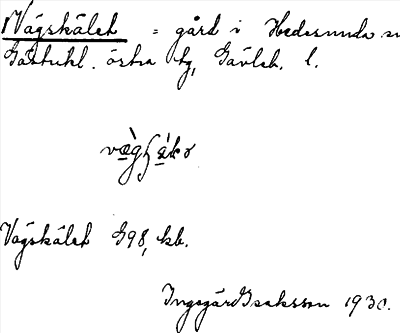 Vägskälet = gård i Hedesunda sn
Gästrikl. östra tg, Gävleb. l.
Vägskälet G98, kb.
Ingegärd Isaksson 1930.